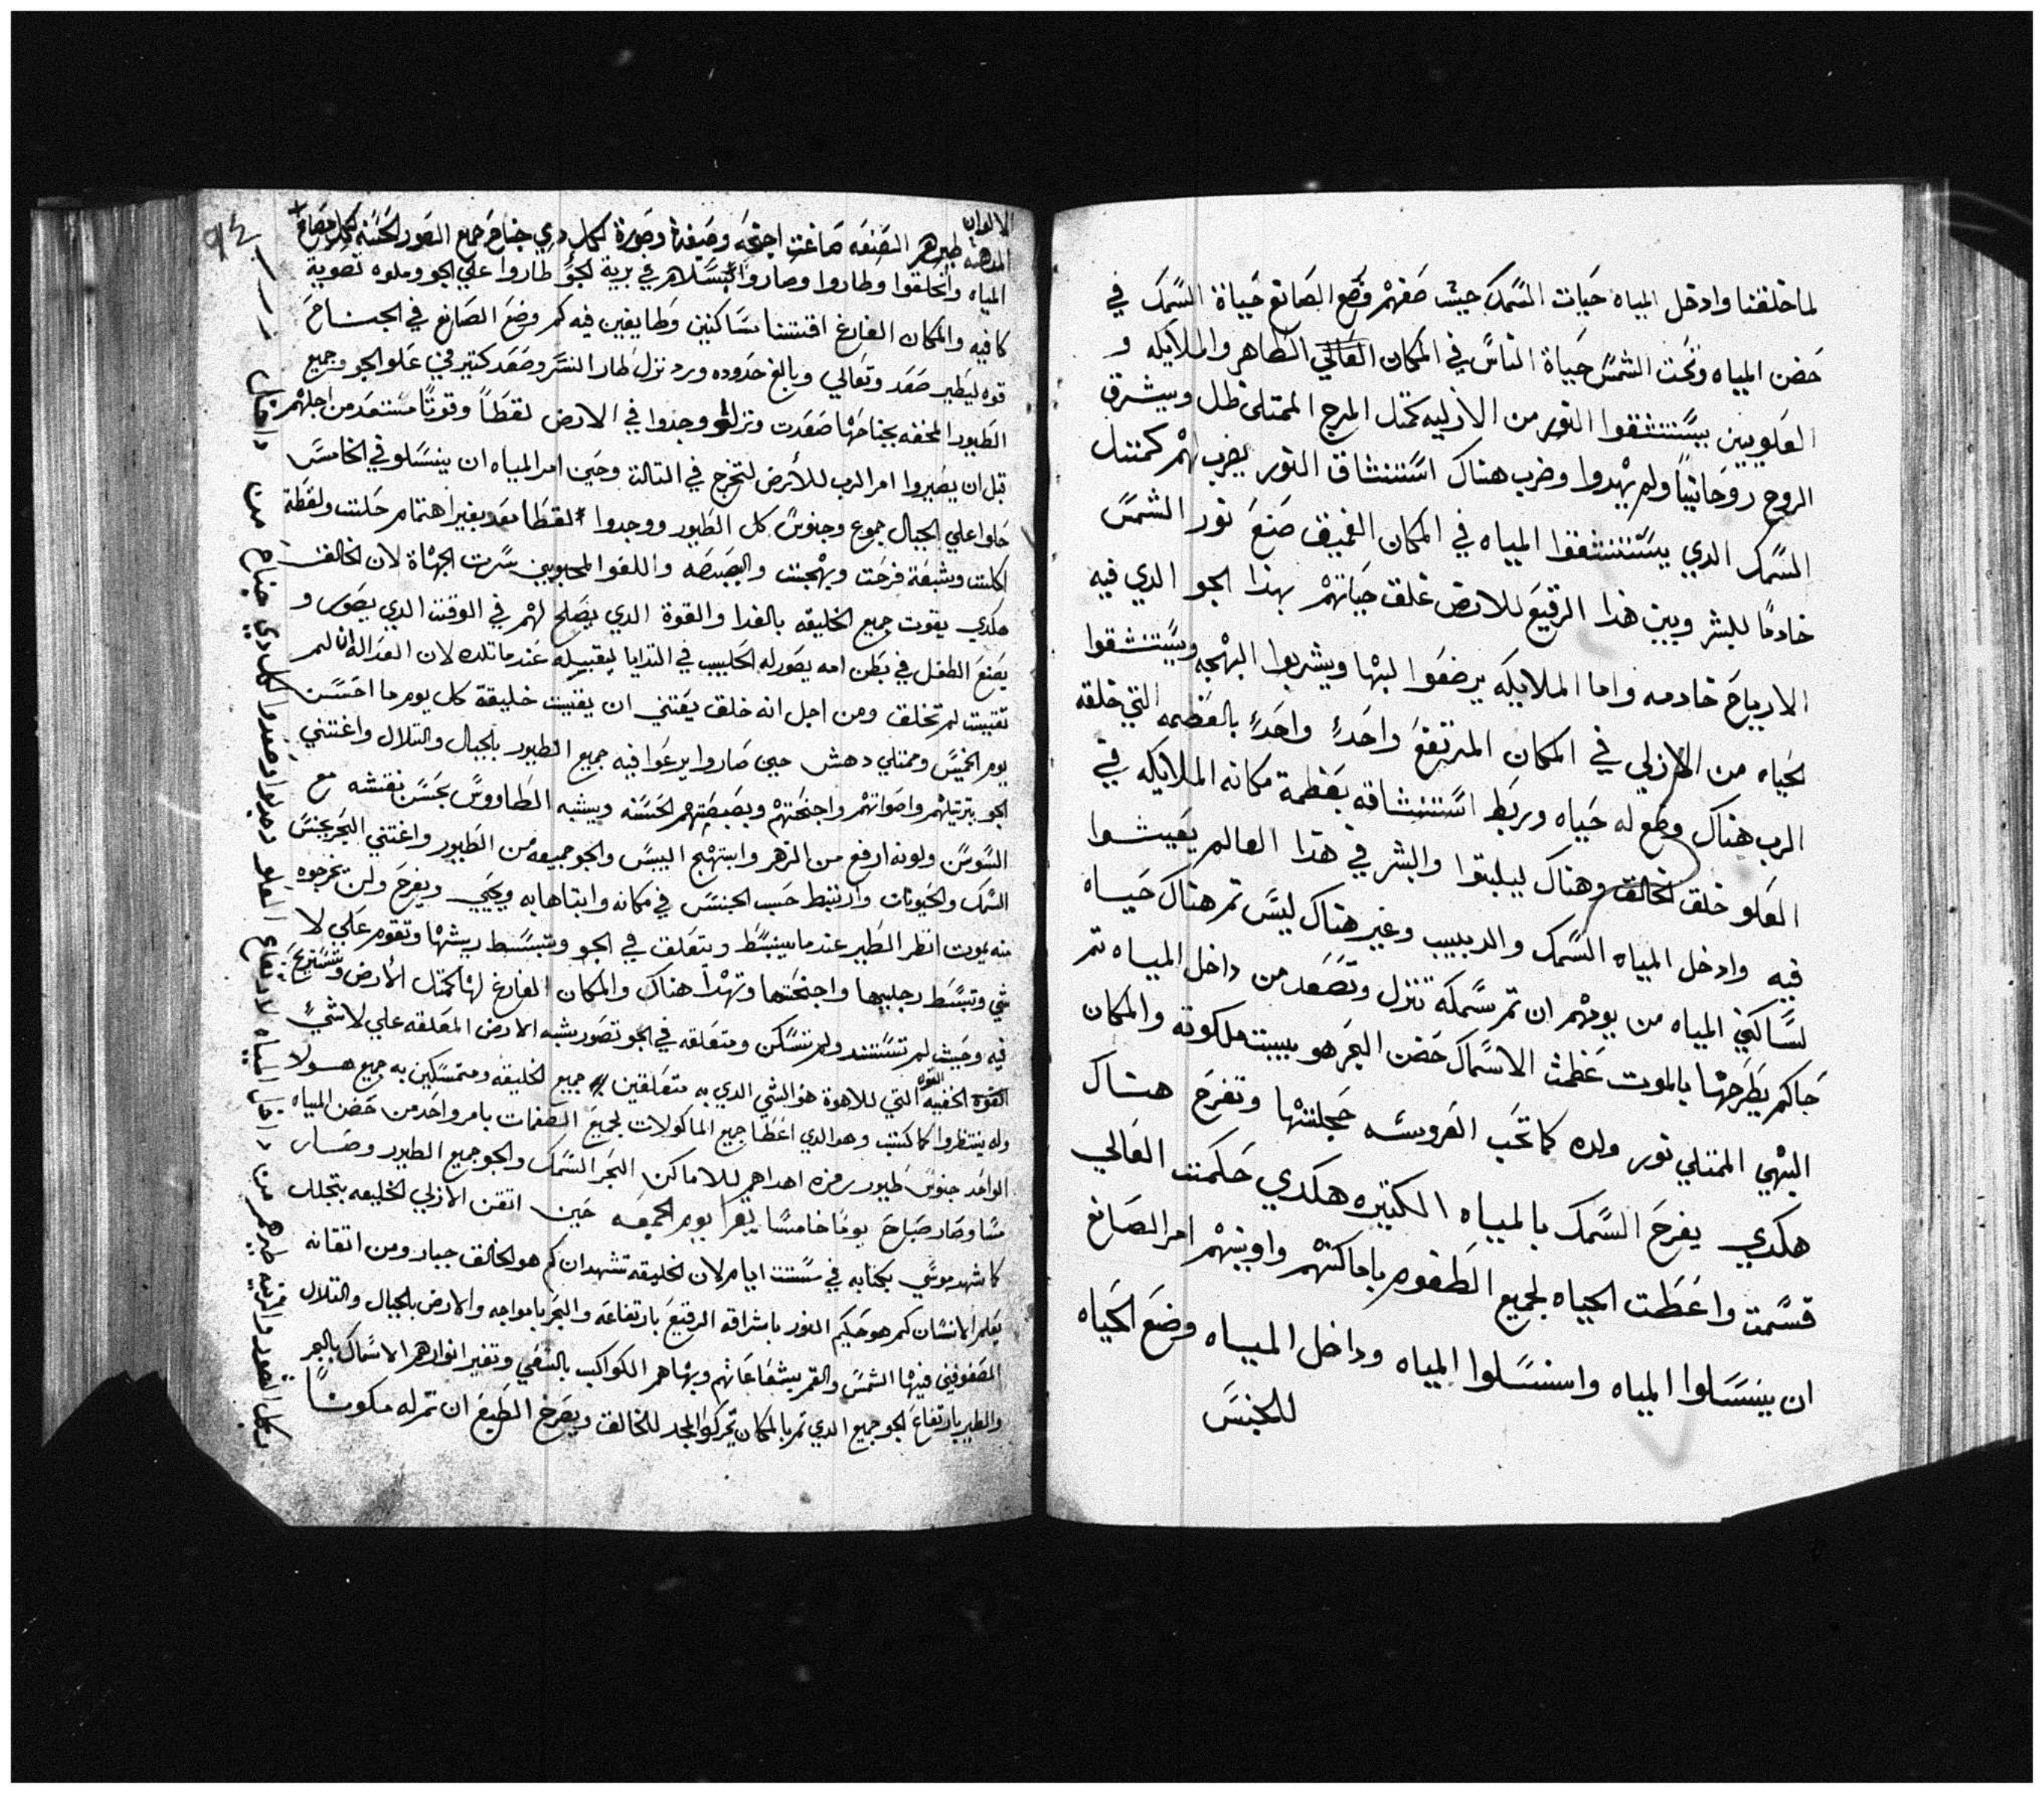 لما خلقنا وادخل المياه حيات السمك حيث صفهم وضع الصانع حياة السمك في
حضن المياه وتحت الشمس حياة الناس في المكان العالي الطاهر والملايكه و
العلويين يستنشقوا النور من الازليه كمتل المرج الممتلى ظل ويشرق
الروح روحانيا ولم يهدوا وضرب هناك استنشاق النور يضرب لهم كمتل
السمك الدي يستنشقوا المياه في المكان الغميق صنع نور الشمس
خادما للبشر وبين هدا الرقيع للارض غلق حياتهم بهدا الجو الدي فيه
الارياح خادمه واما الملايكه يرضعوا لبنها ويشربوا البهجه ويستنشقوا
الحياه من الازلي في المكان المرتفع واحدٍ واحدٍ بالعضمه التي خلقه
الرب هناك وضع له حياه وربط استنشاقه بعظمة مكانه الملايكه في
العلو خلق الخالق وهناك ليبلبتوا والبشر في هدا العالم يعيشوا
فيه وادخل المياه السمك والدبيب وغير هناك ليس تم هناك حياه
لساكني المياه من يومهم ان تم سمكه تنزل وتصعد من داخل المياه تم
حاكم يطرحها بالموت عظمت الاسماك حضن البحر هو بيت ملكوته والمكان
البهي الممتلي نور ولده كما تحب العروسه حجلتها وتفرح هناك
هكدي يفرح السمك بالمياه الكتيره هكدي حكمت العالي
قسمت واعطت الحياه لجميع الطغوم باماكنهم واوينهم امر الصانع
ان ينسلوا المياه وانسلوا المياه وداخل المياه وضع الحياه
للجنس
٩٤
الالوان
المدهبه طيرهم الصنعه صاغت اجنحه وصيغة وصورة لكل دي جناح جميع الصور الحسنه
المياه وانخلقوا وطاروا وصاروا في برية الجو طاروا علي الجو وملوه تصوية
كافيه والمكان الفارغ اقتنتنا ساكنين وطايفين فيه كم وضع الصانع في الجناح
قوه ليطير صعد وتعالي وبالغ حدوده ورد نزل طار النسر وصعد كتير في علو الجو وجميع
الطيور المحفه بجناحها صعدت ونزلت ووجدوا في الارض لقطاً وقوتاً مستعد من اجلهم
قبل ان يصيروا امر الرب للأرض لتخرج في التالت وحين امر المياه ان ينسلو في الخامس
حلوا علي الجبال جموع وجنوس كل الطيور ووجدوا لقطا معد بغير اهتمام حلت ولقطة
اكلت وشبعة فرحت وبهجت والبصبصه واللغو المحبوبين سرت الجهاة لان الخالق
هكدي يقوت جميع الخليقه بالغدا والقوة الدي يصلح لهم في الوقت الدي يصور و
يصنع الطفل في بطن امه يصور له الحليب في التدايا ليقيته عندما تلده لان الغدا له ان لم
تقيت لم تخلق ومن اجل انه خلق يعتني ان يقيت خليقة كل يوم ما احسن
يوم الخميس وممتلي دهش حين صاروا يرعوا فيه جميع الطيور بالجبال والتلال واغتني
الجو بترتيلهم واصواتهم واجنحتهم وبصبصتهم الحسنه ويشبه الطاووس بحسن نقشه مع
السوسن ولونه ارفع من الزهر وابتهج اليبس والجو جميعه من الطيور واغتني البحر بجنس
السمك والحيوتات وارتبط حسب الجنس في مكانه وابتاها به ويحيي ويفرح ولن يخرجوه
منه يموت انظر الطير عندما ينبسط ويتعلق في الجو ويتبسط ريشها وتقوم علي لا
شي وتبسط رجليها واجنحتها وتهدا هناك والمكان الفارغ لها كمتل الأرض وتستريح
فيه وحيث لم تستند ولم تسكن ومتعلقه في الجو تصور شبه الارض المعلقه علي لا شيء
القوه الخفيه التي للاهوة هو الشي الدي به متعلقين جميع الخليقه ومتمسكين به جميع هولا
وله ينتظروا كما كتب وهو الدي اعطا جميع الماكولات لجميع الطغمات بامر واحد من حضن المياه
الواحد جنوس طيور رمزه اهداهم للاماكن البحر السمك والجو جميع الطيور وصار
مسا وصار صباح يوما خامسا يقرا يوم الجمعه حين اتقن الازلي الخليقه بتجلد
كما شهد موسي بكتابه في ستت ايام لان الخليقه تشهد ان كم هو الخالق جبار ومن اتقانه
يعلم الانسان كم هو حكيم النور باشراقه الرقيع بارتفاعه والبحر بامواجه والارض بالجبال والتلال
المصفوفين فيها الشمس والقمر بشعاعاتهم وبهاهم الكواكب بالسعي وتغير انوارهم الاسماك بالبحر
والطير بارتفاع الجو جميع الدي تم بالمكان تحركوا لمجد للخالق ويصرخ الطيع ان تم له مكوناً